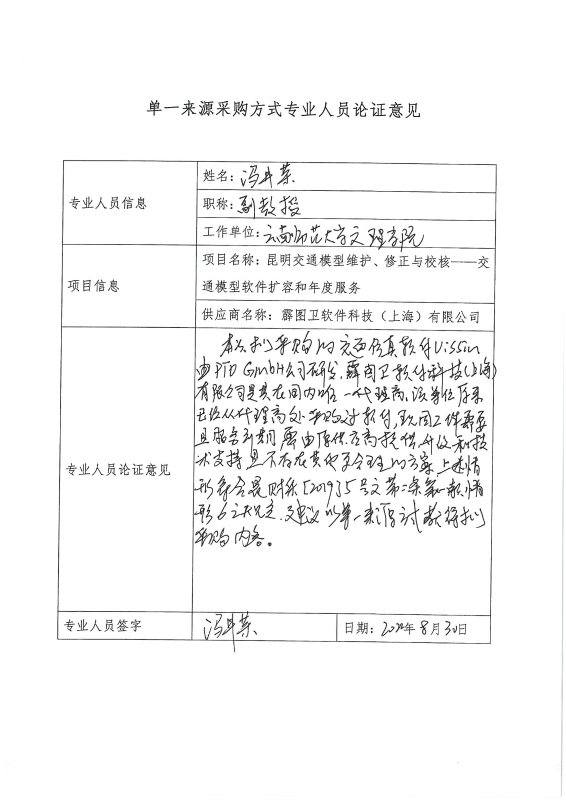 单一来源采购方式专业人员论证意见
专业人员信息
姓名：冯 荣
职称：副教授
工作单位：云南师范大学文理学院
项目信息
项目名称：昆明交通模型维护、修正与校核——交
通模型软件扩容和年度服务
供应商名称：霹图卫软件科技（上海）有限公司
专业人员论证意见
本次拟采购的交通仿真软件Vissim
由PTV GmbH公司研发，霹图卫软件科技(上海)
有限公司是其在国内唯一代理商，该单位原来
已经从代理商处采购过软件，现因工作需要
且服务到期需由原供应商提供升级和技
术支持且不存在其他更合理的方案上述情
形符合昆财采[2019]5号文第二条第一款情
形 之规定，建议以单一来源 获得拟
采购内容。
专业人员签字
冯 荣
日期：2020年8月30日